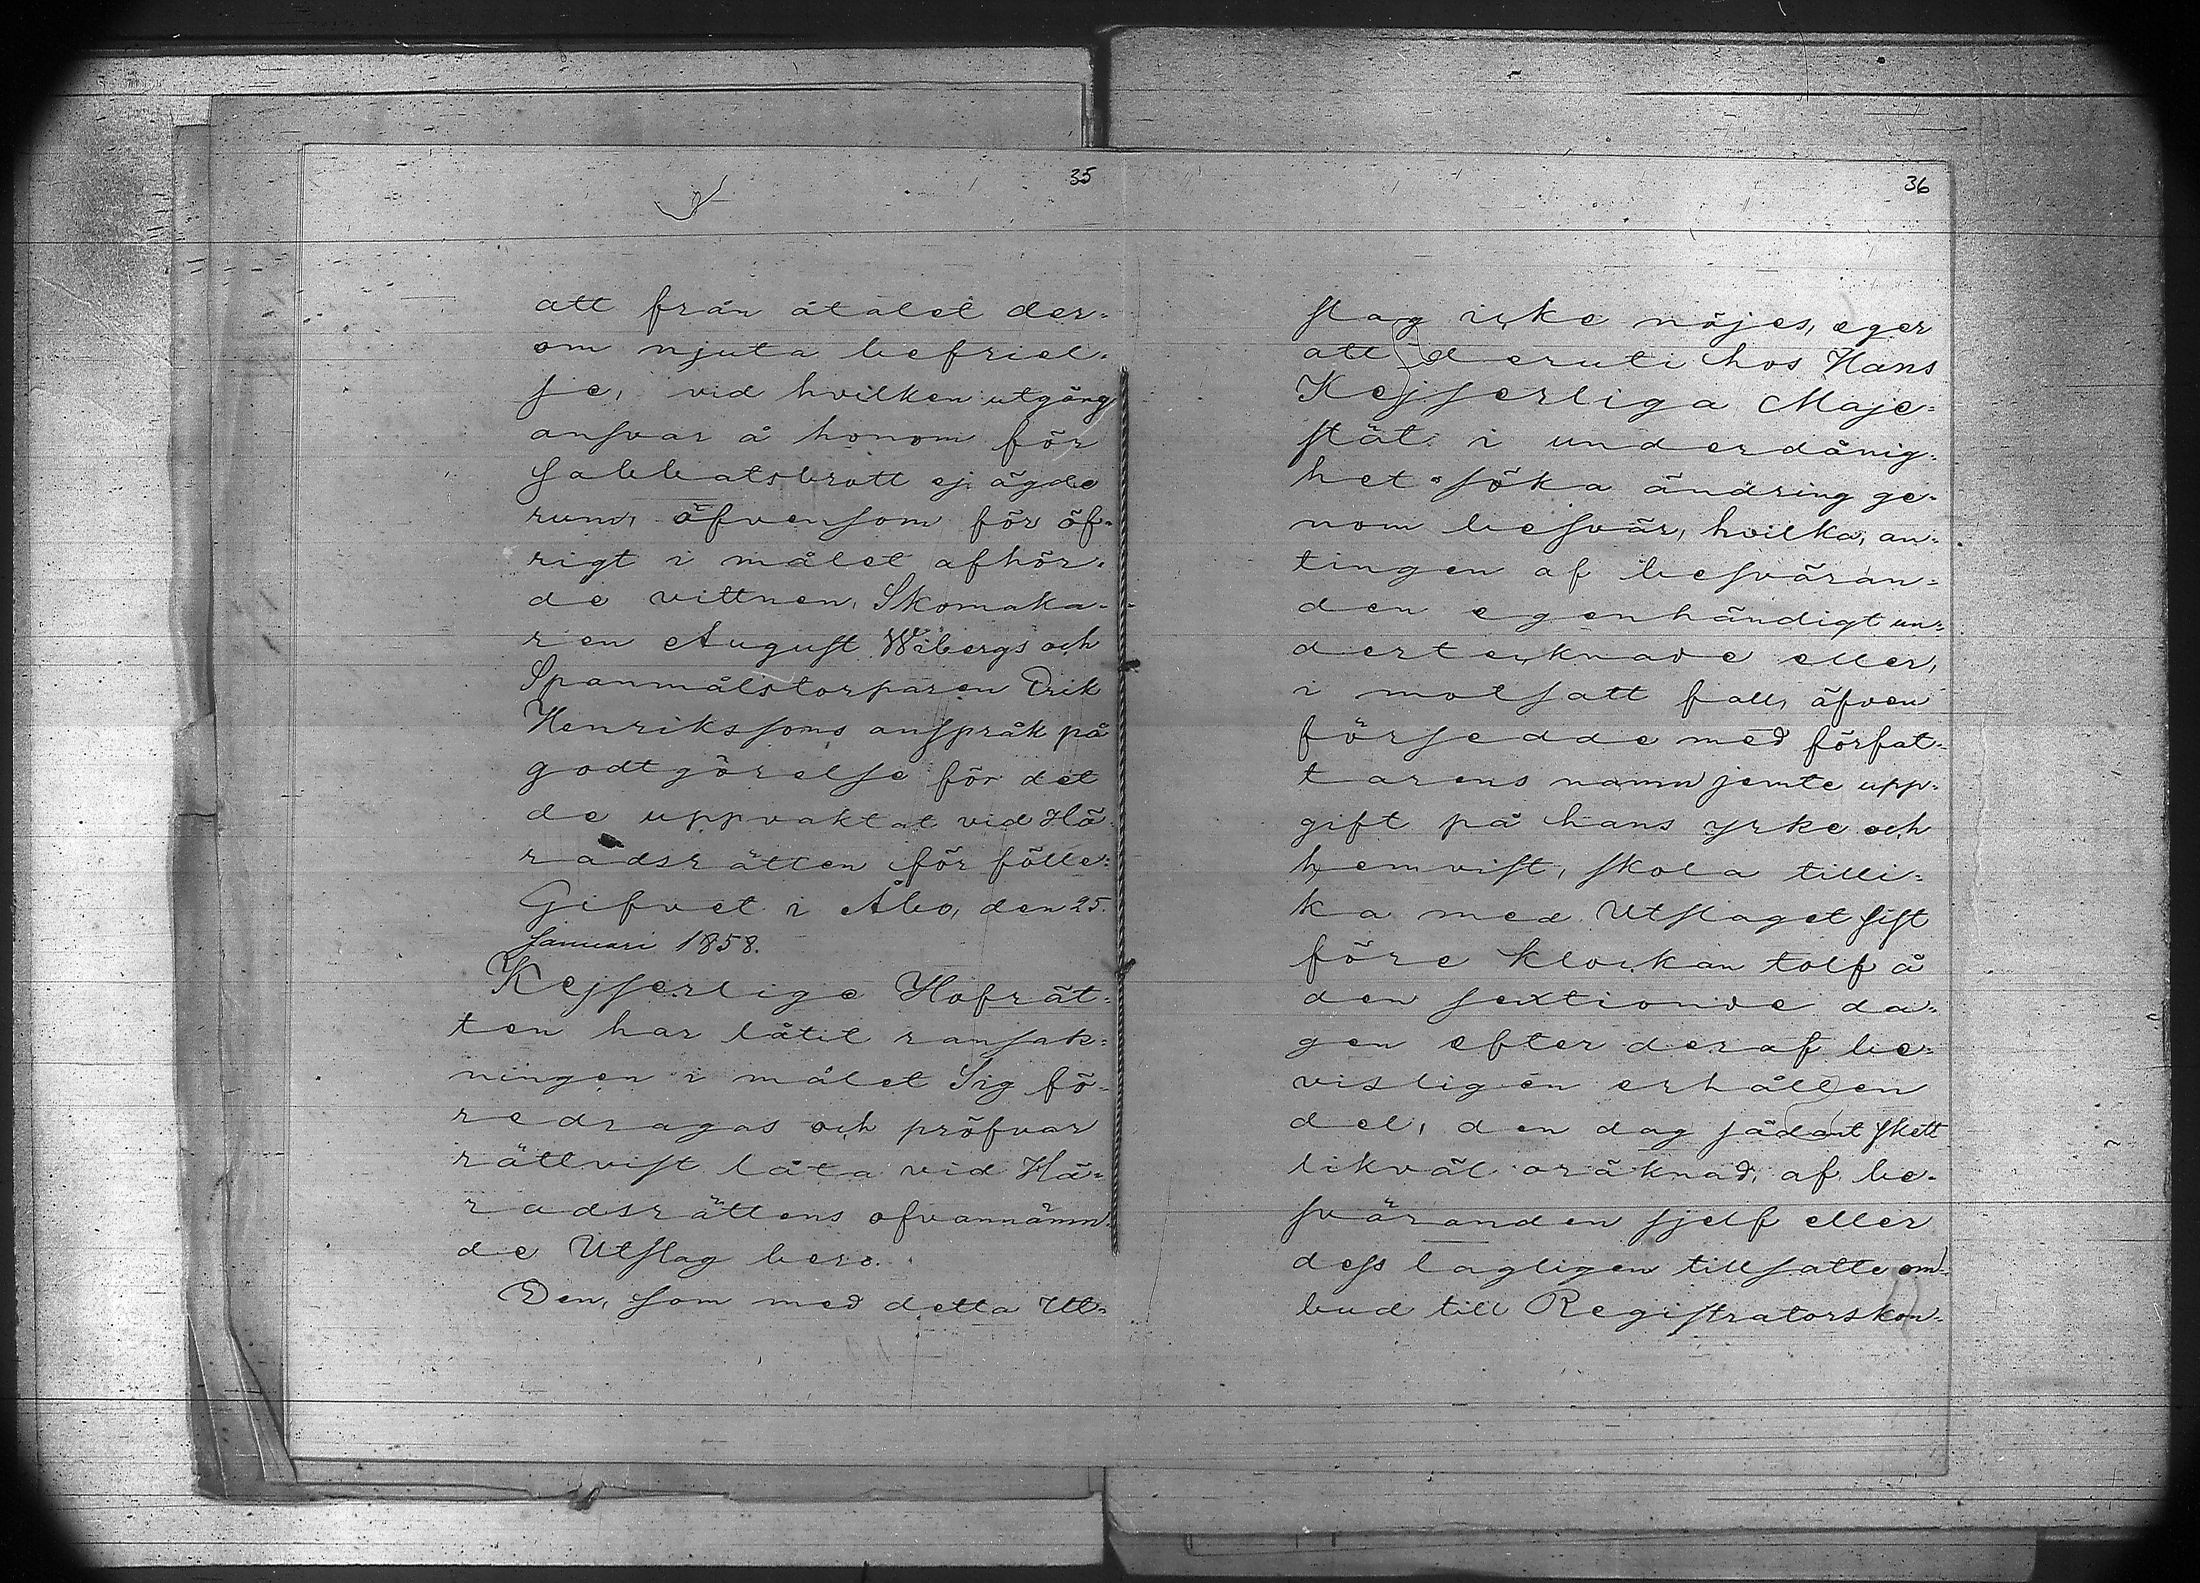 35
att från åtalet der-
om njuta befriel-
se, vid hvilken utgång
ansvar å honom för
sabbatsbrott ej ägde
rum, äfvensom för öf-
rigt i målet afhör-
de vittnen, Skomaka-
ren August Wibergs och
Spanmålstorparen Erik
Henrikssons anspråk på
godtgörelse för det
de uppvaktat vid Hä-
radsrätten för fölle:
Gifvet i Åbo, den 25.
Januari 1858.
Kejserlige Hofrät-
ten har låtit ransak-
ningen i målet Sig fö-
redragas och pröfvar
rättvist låta vid Hä-
radsrättens ofvannämn-
de Utslag bero.
Den, som med detta Ut-
36
slag icke nöjes, eger
att deruti hos Hans
Kejserliga Maje-
stät i underdånig-
het söka ändring ge-
nom besvär, hvilka, an-
tingen af besväran-
den egenhändigt un-
dertecknade eller,
i motsatt fall, äfven
försedde med förfat-
tarens namn jemte upp-
gift på hans yrke och
hemvist, skola tilli-
ka med Utslaget sist
före klockan tolf å
den sextionde da-
gen efter deraf be-
visligen erhållen
del, den dag sådant skett
likväl oräknad, af be-
sväranden sjelf eller
dess lagligen tillsatte om-
bud till Registratorskon-